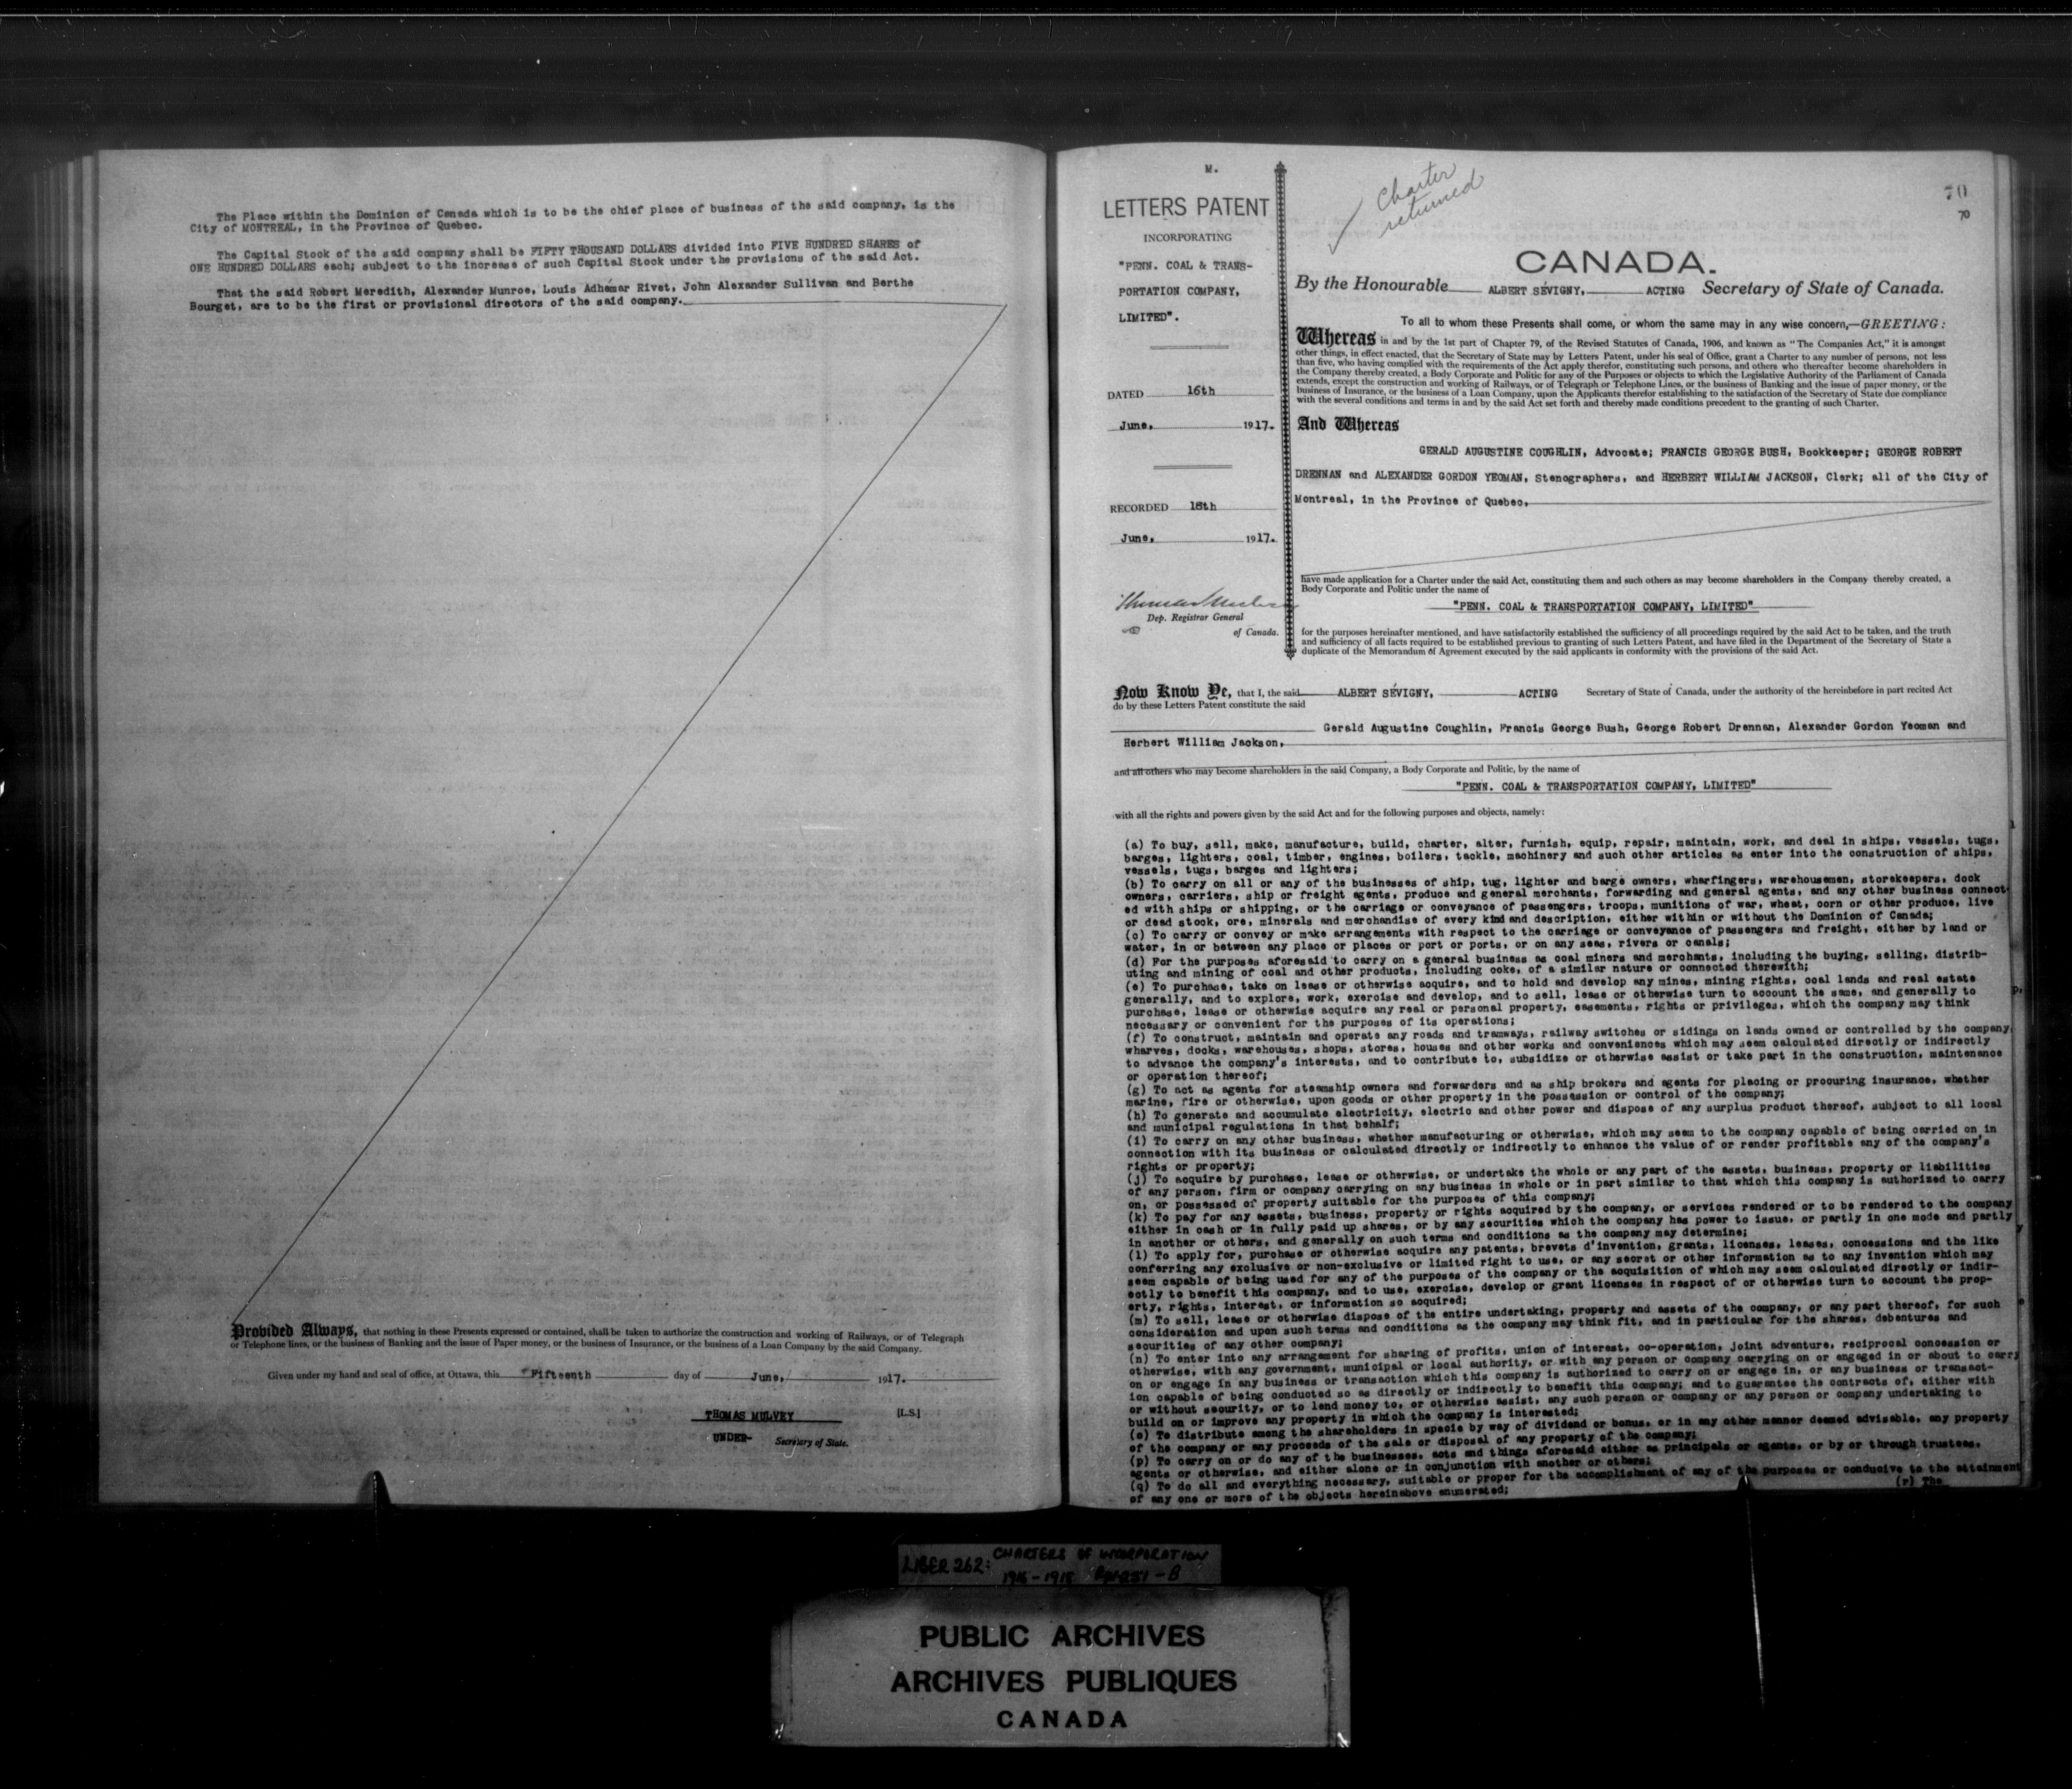 The Place within the Dominion of Canada which is to be the chief place of business of the said company, is the
City of MONTREAL, in the Province of Quebec.
The Capital Stock of the said company shall be FIFTY THOUSAND DOLLARS divided into FIVE HUNDRED SHARES of
ONE HUNDRED DOLLARS each; subject to the increase of such Capital Stock under the provisions of the said Act.
That the said Robert Meredith, Alexander Munroe, Louis Adhémar Rivet, John Alexander Sullivan and Berthe
Bourget, are to be the first or provisional directors of the said company.
Provided Always, that nothing in these Presents expressed or contained, shall be taken to authorize the construction and working of Railways, or of Telegraph
or Telephone lines, or the business of Banking and the issue of Paper money, or the business of Insurance, or the business of a Loan Company by the said Company.
Given under my hand and seal of office, at Ottawa, this Fifteenth day of June, 1917.
THOMAS MULVEY [L.S.]
UNDER- Secretary of State.
M.
LETTERS PATENT
INCORPORATING
"PENN. COAL & TRANS-
PORTATION COMPANY,
LIMITED".
DATED 16th
June, 1917.
RECORDED 16th
June, 1917.
Thomas Mulvey
Dep. Registrar General
of Canada.
Charter
returned
70
70
CANADA.
By the Honourable ALBERT SÉVIGNY, ACTING Secretary of State of Canada.
To all to whom these Presents shall come, or whom the same may in any wise concern,—GREETING:
Whereas in and by the 1st part of Chapter 79, of the Revised Statutes of Canada, 1906, and known as "The Companies Act," it is amongst
other things, in effect enacted, that the Secretary of State may by Letters Patent, under his seal of Office, grant a Charter to any number of persons, not less
than five, who having complied with the requirements of the Act apply therefor, constituting such persons, and others who thereafter become shareholders in
the Company thereby created, a Body Corporate and Politic for any of the Purposes or objects to which the Legislative Authority of the Parliament of Canada
extends, except the construction and working of Railways, or of Telegraph or Telephone Lines, or the business of Banking and the issue of paper money, or the
business of Insurance, or the business of a Loan Company, upon the Applicants therefor establishing to the satisfaction of the Secretary of State due compliance
with the several conditions and terms in and by the said Act set forth and thereby made conditions precedent to the granting of such Charter.
And Whereas
GERALD AUGUSTINE COUGHLIN, Advocate; FRANCIS GEORGE BUSH, Bookkeeper; GEORGE ROBERT
DRENNAN and ALEXANDER GORDON YEOMAN, Stenographers, and HERBERT WILLIAM JACKSON, Clerk; all of the City of
Montreal, in the Province of Quebec,
have made application for a Charter under the said Act, constituting them and such others as may become shareholders in the Company thereby created, a
Body Corporate and Politic under the name of
"PENN. COAL & TRANSPORTATION COMPANY, LIMITED"
for the purposes hereinafter mentioned, and have satisfactorily established the sufficiency of all proceedings required by the said Act to be taken, and the truth
and sufficiency of all facts required to be established previous to granting of such Letters Patent, and have filed in the Department of the Secretary of State a
duplicate of the Memorandum of Agreement executed by the said applicants in conformity with the provisions of the said Act.
Now Know Ye, that I, the said ALBERT SÉVIGNY, ACTING Secretary of State of Canada, under the authority of the hereinbefore in part recited Act
do by these Letters Patent constitute the said
Gerald Augustine Coughlin, Francis George Bush, George Robert Drennan, Alexander Gordon Yeoman and
Herbert William Jackson,
and all others who may become shareholders in the said Company, a Body Corporate and Politic, by the name of
"PENN. COAL & TRANSPORTATION COMPANY, LIMITED"
with all the rights and powers given by the said Act and for the following purposes and objects, namely:
(a) To buy, sell, make, manufacture, build, charter, alter, furnish, equip, repair, maintain, work, and deal in ships, vessels, tugs,
barges, lighters, coal, timber, engines, boilers, tackle, machinery and such other articles as enter into the construction of ships,
vessels, tugs, barges and lighters;
(b) To carry on all or any of the businesses of ship, tug, lighter and barge owners, wharfingers, warehousemen, storekeepers, dock
owners, carriers, ship or freight agents, produce and general merchants, forwarding and general agents, and any other business connect-
ed with ships or shipping, or the carriage or conveyance of passengers, troops, munitions of war, wheat, corn or other produce, live
or dead stock, ore, minerals and merchandise of every kind and description, either within or without the Dominion of Canada;
(c) To carry or convey or make arrangements with respect to the carriage or conveyance of passengers and freight, either by land or
water, in or between any place or places or port or ports, or on any seas, rivers or canals;
(d) For the purposes aforesaid to carry on a general business as coal miners and merchants, including the buying, selling, distrib-
uting and mining of coal and other products, including coke, of a similar nature or connected therewith;
(e) To purchase, take on lease or otherwise acquire, and to hold and develop any mines, mining rights, coal lands and real estate
generally, and to explore, work, exercise and develop, and to sell, lease or otherwise turn to account the same, and generally to
purchase, lease or otherwise acquire any real or personal property, easements, rights or privileges, which the company may think
necessary or convenient for the purposes of its operations;
(f) To construct, maintain and operate any roads and tramways, railway switches or sidings on lands owned or controlled by the company,
wharves, docks, warehouses, shops, stores, houses and other works and conveniences which may seem calculated directly or indirectly
to advance the company's interests, and to contribute to, subsidize or otherwise assist or take part in the construction, maintenance
or operation thereof;
(g) To act as agents for steamship owners and forwarders and as ship brokers and agents for placing or procuring insurance, whether
marine, fire or otherwise, upon goods or other property in the possession or control of the company;
(h) To generate and accumulate electricity, electric and other power and dispose of any surplus product thereof, subject to all local
and municipal regulations in that behalf;
(i) To carry on any other business, whether manufacturing or otherwise, which may seem to the company capable of being carried on in
connection with its business or calculated directly or indirectly to enhance the value of or render profitable any of the company's
rights or property;
(j) To acquire by purchase, lease or otherwise, or undertake the whole or any part of the assets, business, property or liabilities
of any person, firm or company carrying on any business in whole or in part similar to that which this company is authorized to carry
on, or possessed of property suitable for the purposes of this company;
(k) To pay for any assets, business, property or rights acquired by the company, or services rendered or to be rendered to the company
either in cash or in fully paid up shares, or by any securities which the company has power to issue, or partly in one mode and partly
in another or others, and generally on such terms and conditions as the company may determine;
(l) To apply for, purchase or otherwise acquire any patents, brevets d'invention, grants, licenses, leases, concessions and the like
conferring any exclusive or non-exclusive or limited right to use, or any secret or other information as to any invention which may
seem capable of being used for any of the purposes of the company or the acquisition of which may seem calculated directly or indir-
ectly to benefit this company, and to use, exercise, develop or grant licenses in respect of or otherwise turn to account the prop-
erty, rights, interest, or information so acquired;
(m) To sell, lease or otherwise dispose of the entire undertaking, property and assets of the company, or any part thereof, for such
consideration and upon such terms and conditions as the company may think fit, and in particular for the shares, debentures and
securities of any other company;
(n) To enter into any arrangement for sharing of profits, union of interest, co-operation, joint adventure, reciprocal concession or
otherwise, with any government, municipal or local authority, or with any person or company carrying on or engaged in or about to carry
on or engage in any business or transaction which this company is authorized to carry on or engage in, or any business or transact-
ion capable of being conducted so as directly or indirectly to benefit this company; and to guarantee the contracts of, either with
or without security, or to lend money to, or otherwise assist, any such person or company or any person or company undertaking to
build on or improve any property in which the company is interested;
(o) To distribute among the shareholders in specie by way of dividend or bonus, or in any other manner deemed advisable, any property
of the company or any proceeds of the sale or disposal of any property of the company;
(p) To carry on or do any of the businesses, acts and things aforesaid either as principals or agents, or by or through trustees,
agents or otherwise, and either alone or in conjunction with another or others;
(q) To do all and everything necessary, suitable or proper for the accomplishment of any of the purposes or conducive to the attainment
of any one or more of the objects hereinabove enumerated;
(r) The
LIBER 262: CHARTERS OF INCORPORATION
1916-1918
PUBLIC ARCHIVES
ARCHIVES PUBLIQUES
CANADA